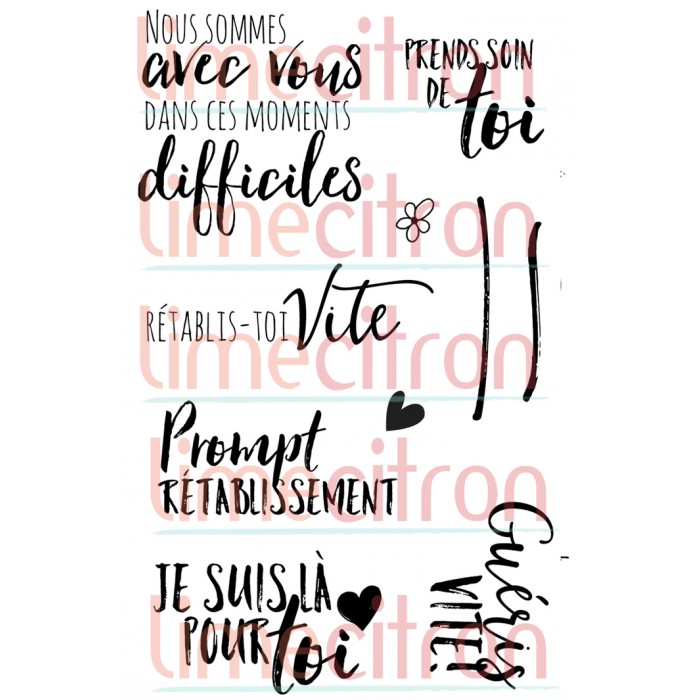 NOUS SOMMES
avec vous
DANS CES MOMENTS
difficiles
PRENDS SOIN
DE toi
RÉTABLIS-TOI Vite
Prompt
RÉTABLISSEMENT
JE SUIS LÀ
POUR toi
Guéris
VITE!
limecitron
limecitron
limecitron
limecitron
limecitron